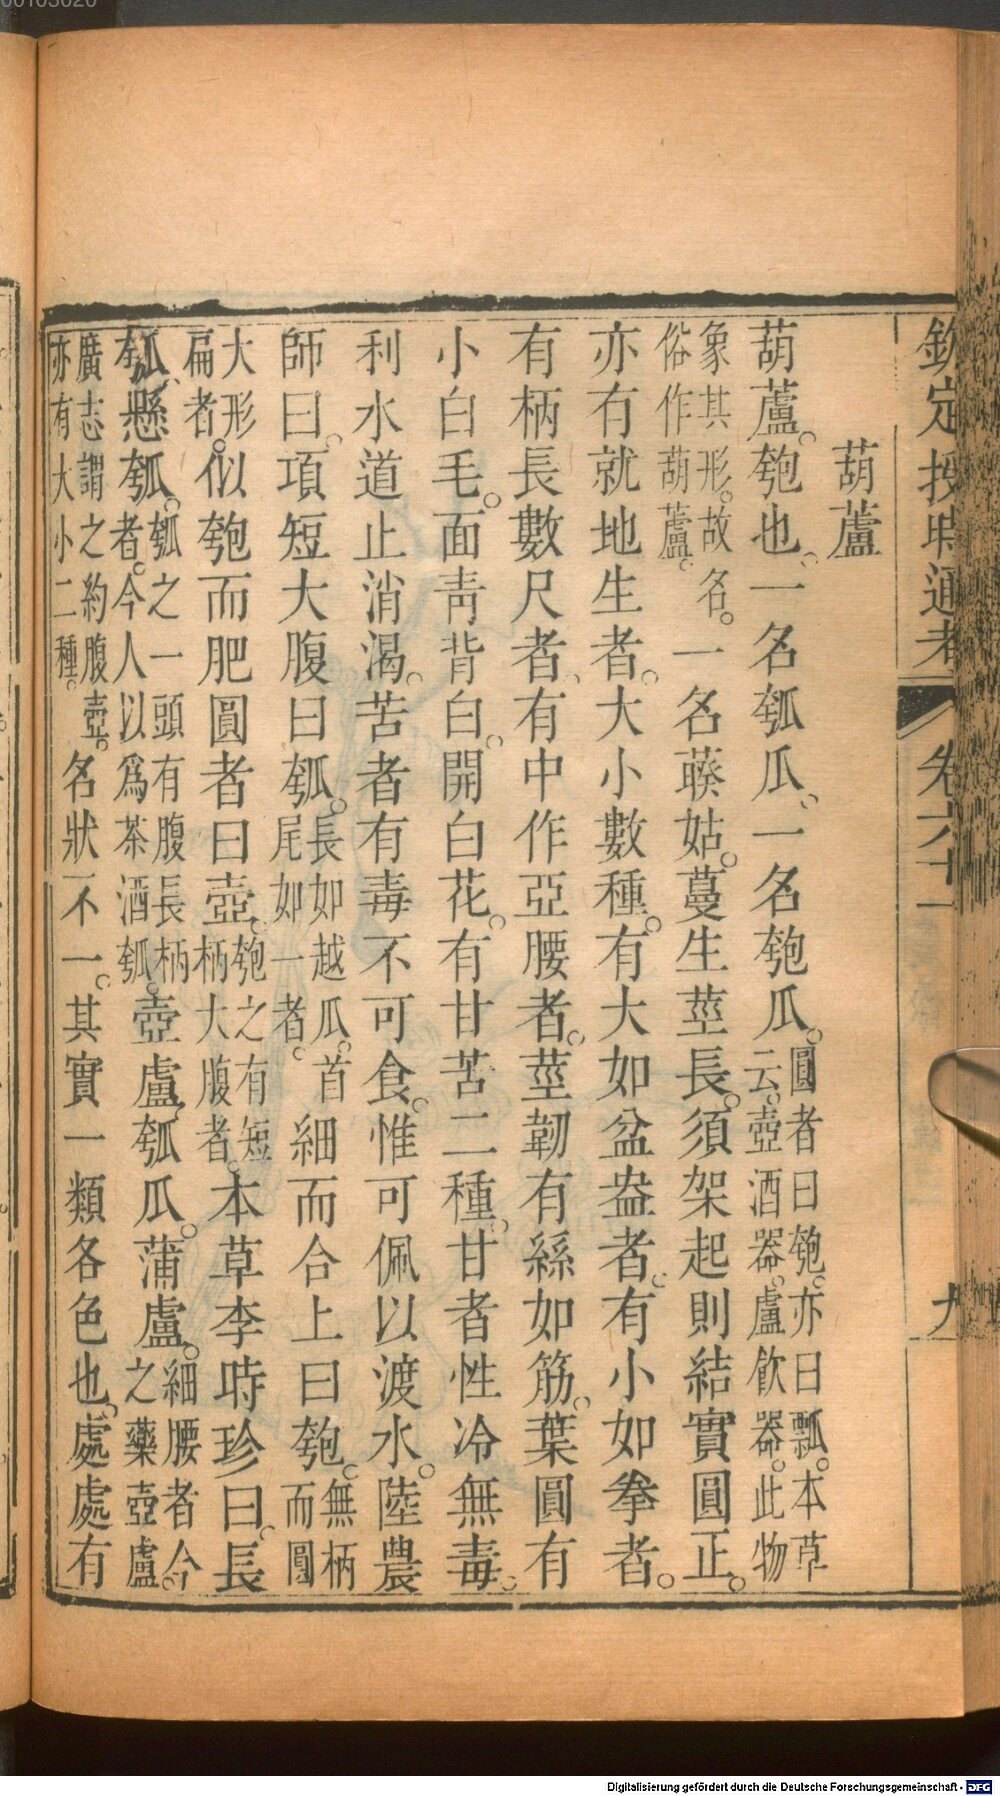 欽定授時通考 卷六十一 九
葫蘆
葫蘆。匏也、一名瓠瓜、一名匏瓜。圓者曰匏。亦曰瓢。本草云。壺酒器。盧飲器。此物
象其形。故名。俗作葫蘆。一名藈姑。蔓生莖長。須架起則結實圓正。
亦有就地生者。大小數種。有大如盆盎者。有小如拳者。
有柄長數尺者、有中作亞腰者。莖韌有絲如筋。葉圓有
小白毛。面靑背白。開白花。有甘苦二種。甘者性冷無毒。
利水道止消渴。苦者有毒不可食。惟可佩以渡水。陸農
師曰。項短大腹曰瓠。長如越瓜。首尾如一者。細而合上曰匏。無柄而圓
大形扁者。似匏而肥圓者曰壺。匏之有短柄大腹者。本草李時珍曰。長
瓠、懸瓠。瓠之一頭有腹長柄者。今人以爲茶酒瓠。壺盧瓠瓜。蒲盧。細腰者今之藥壺盧。
廣志謂之約腹壺。亦有大小二種。名狀不一。其實一類各色也。處處有
Digitalisierung gefördert durch die Deutsche Forschungsgemeinschaft - DFG